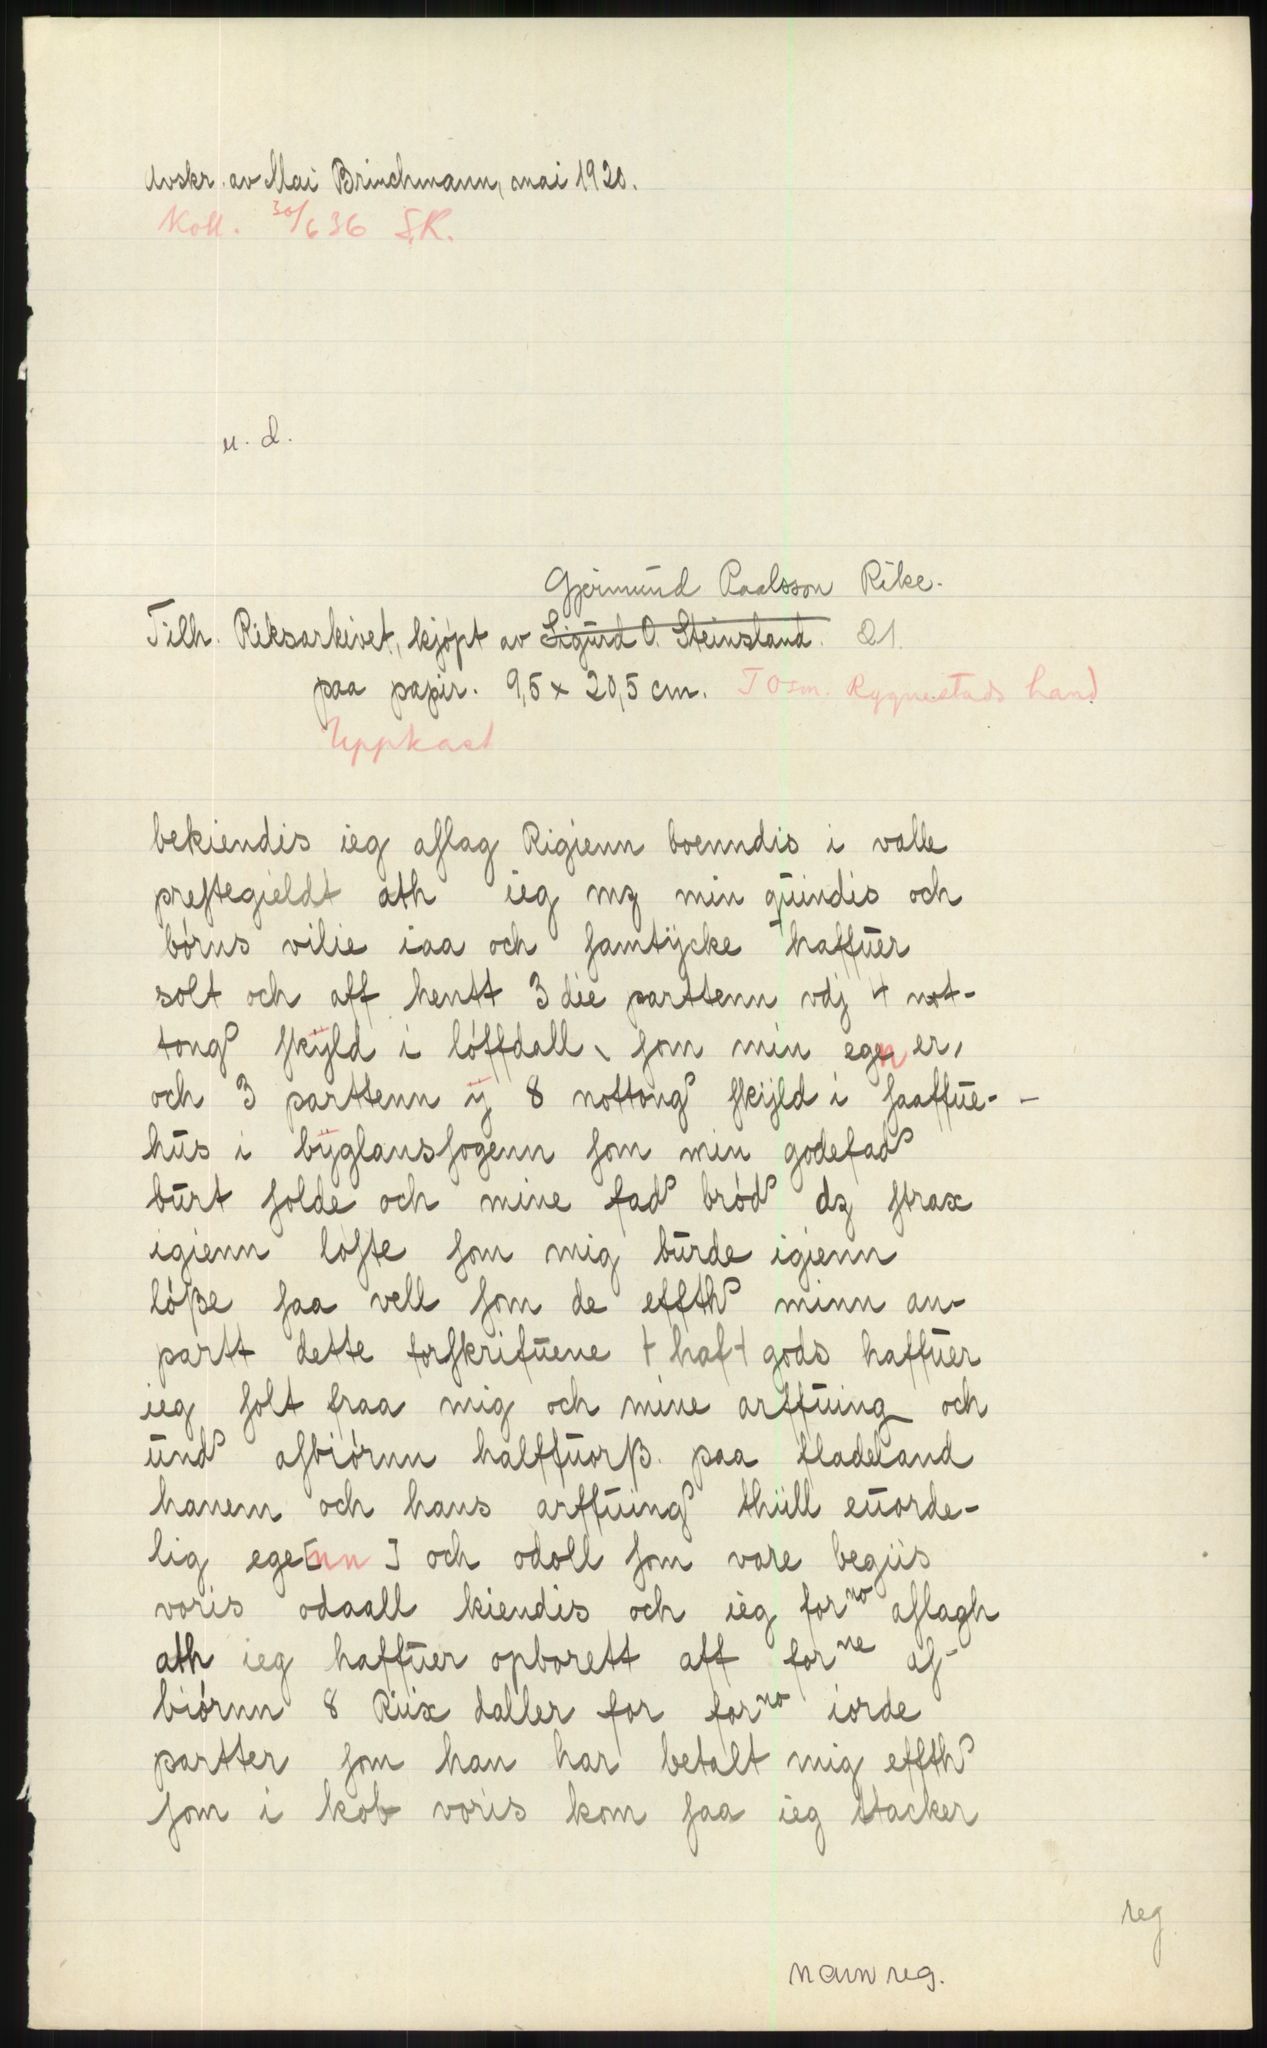 Avskr. av Mai Brinchmann, mai 1920.
Koll. 30/6 36 S.K.
u. d.
Gjermund Paalsson Rike.
Tilh. Riksarkivet, kjøpt av Sigurd O. Steinsland.
paa papir. 9,5 x 20,5 cm. T Osm. Rygnestads hand
Uppkast
bekiendis ieg aslag Rigienn boenndis i valle
prestegieldt ath ieg mz min quindis och
børns vilie iaa och samtÿcke haffuer
solt och aff hentt 3 die parttenn vdj 4 not-
tong skÿld i løffdall, som min egen er,
och 3 parttenn ÿ 8 nottong skÿld i saaffue-
hus i bÿglanssogenn som min godefad
burt solde och mine fad brød dz strax
igienn løste som mig burde igienn
løße saa vell som de effth minn an-
partt dette forskrifuene + haf + gods haffuer
ieg solt fraa mig och mine arffuing och
und asbiørnn halffuorß. paa fladeland
hanem och hans arffuing thiill euorde-
lig ege[nn] och odoll som vore begiis
voris odaall kiendis och ieg for no aslagh
ath ieg haffuer opborett aff for ne as-
biørnn 8 Riix daller for for no iorde
partter som han har betalt mig effth
som i kob voris kom saa ieg tacker
reg
navnreg.